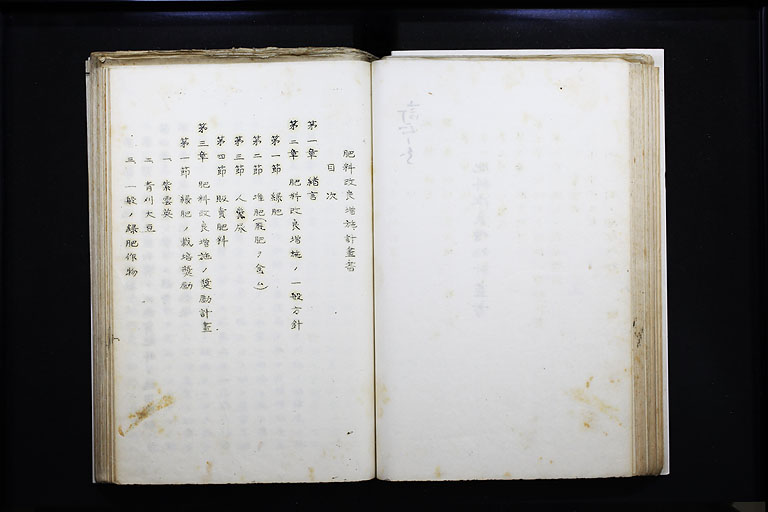 肥料改良増施計畫書
目次
第一章 緒言
第二章 肥料改良増施ノ一般方針
第一節 緑肥
第二節 堆肥(厩肥ヲ含ム)
第三節 人糞尿
第四節 販賣肥料
第三章 肥料改良増施ノ奨勵計畫
第一節 緑肥ノ栽培奨勵
一、紫雲英
二、青刈大豆
三、一般ノ緑肥作物